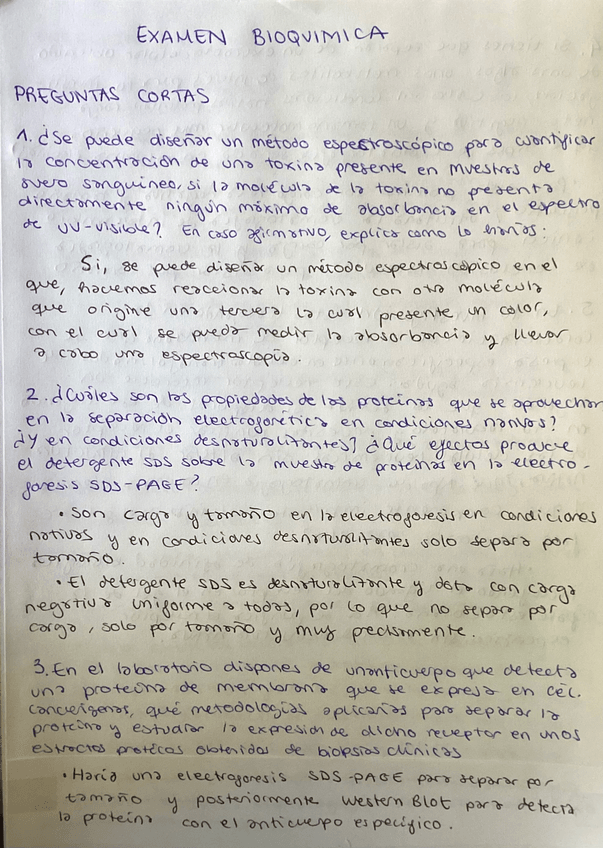 EXAMEN BIOQUIMICA
PREGUNTAS CORTAS
1. ¿Se puede diseñar un método espectroscópico para cuantificar
la concentración de una toxina presente en muestras de
suero sanguíneo, si la molécula de la toxina no presenta
directamente ningún máximo de absorbancia en el espectro
de UV-visible? En caso afirmativo, explica como lo harías.
Si, se puede diseñar un método espectroscópico en el
que, hacemos reaccionar la toxina con otra molécula
que origine una tercera la cual presente un color,
con el cual se pueda medir la absorbancia y llevar
a cabo una espectroscopia.
2. ¿Cuáles son las propiedades de las proteínas que se aprovechan
en la separación electroforética en condiciones nativas?
¿Y en condiciones desnaturalitantes? ¿Qué efectos produce
el detergente SDS sobre la muestra de proteínas en la electro-
foresis SDS-PAGE?
• Son carga y tamaño en la electroforesis en condiciones
nativas y en condiciones desnaturalitantes solo separa por
tamaño.
• El detergente SDS es desnaturalitante y dota con carga
negativa uniforme a todas, por lo que no separa por
carga, solo por tamaño y muy pecisamente.
3. En el laboratorio dispones de unanticuerpo que detecta
una proteína de membrana que se expresa en cél.
cancerígenas, qué metodologías aplicarías para separar la
proteína y estudiar la expresión de dicho receptor en unos
estractos protéicos obtenidos de biopsias clínicas
• Haría una electroforesis SDS-PAGE para separar por
tamaño y posteriormente Western Blot para detecta
la proteína con el anticuerpo específico.